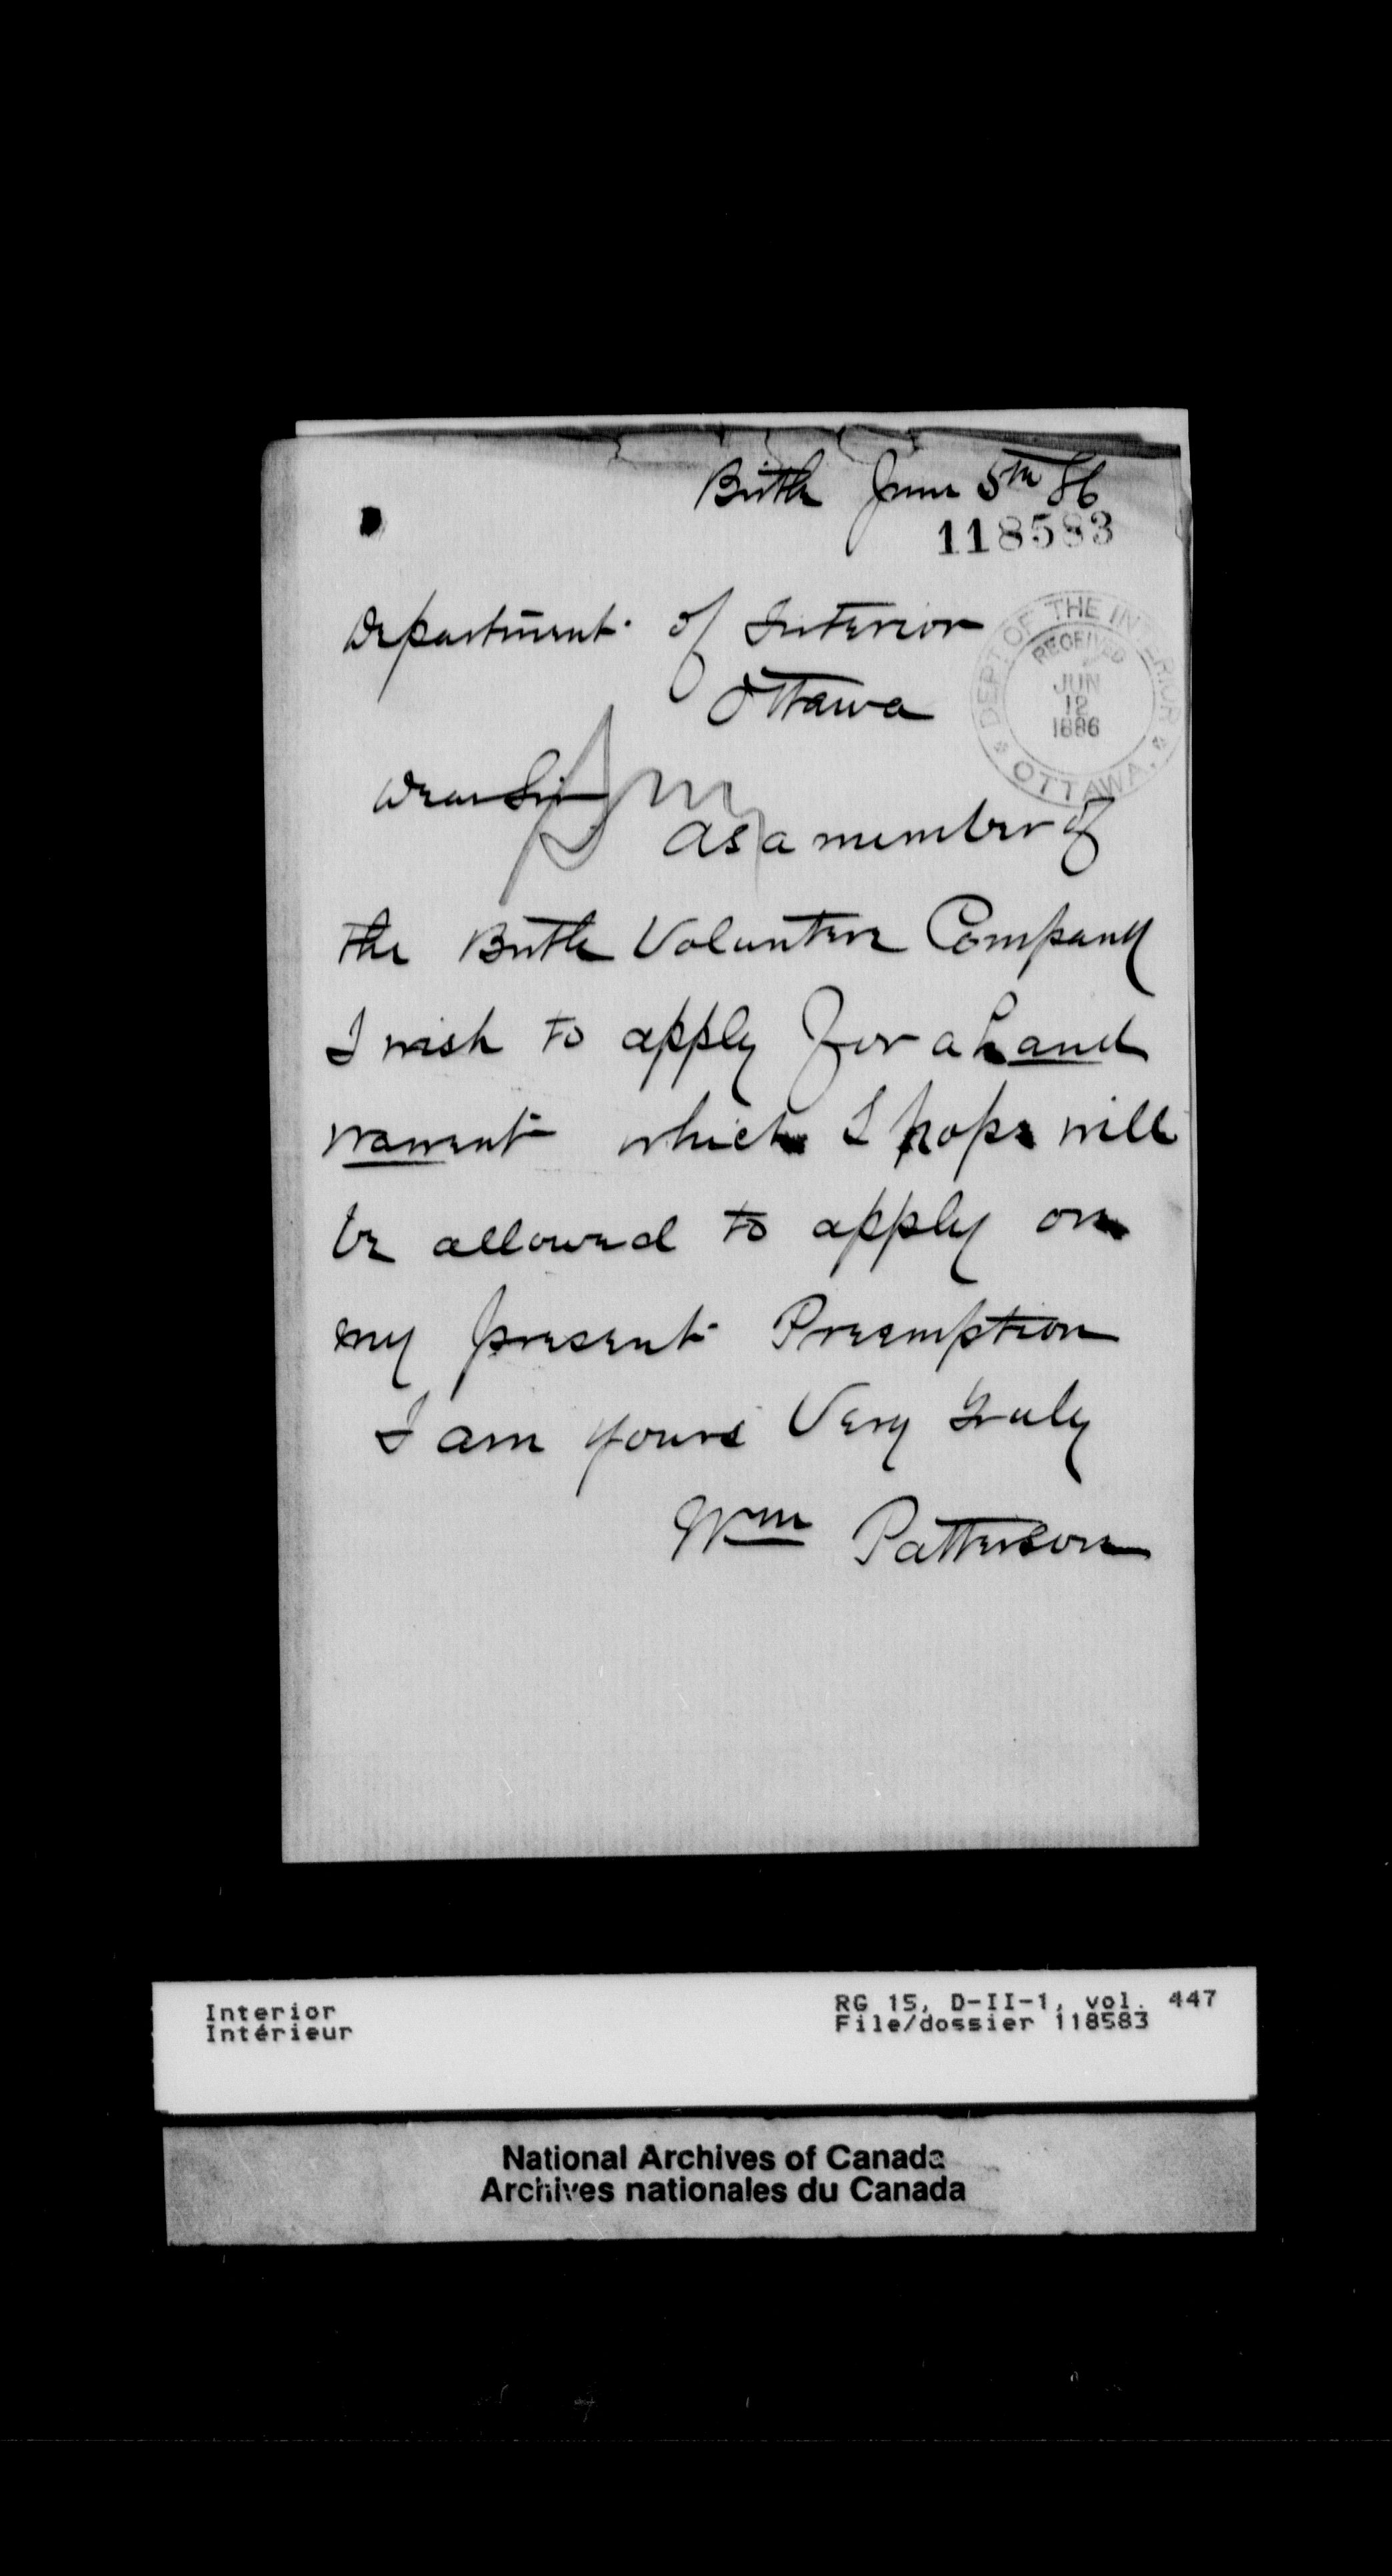 Birtle June 5th 86
118583
Department of Interior
Ottawa
DEPT OF THE INTERIOR
RECEIVED
JUN
12
1886
OTTAWA.
Dear Sir
As a member of
the Birtle Volunteer Company
I wish to apply for a Land
warrent which I hope will
be allowed to apply on
my present Preemption
I am yours Very truly
Wm Patterson
Interior
Intérieur
RG 15, D-II-1, vol. 447
File/dossier 118583
National Archives of Canada
Archives nationales du Canada